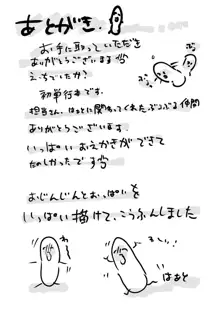 あとがき.
お手に取っていただき
ありがとうございます
えっちでしたか?
初単行本です.
担当さん、はっとに関わってくれたぷるぷる仲間
ありがとうございます.
いっぱいおえかきができて
たのしかったです
おじんじんとおっぱいを
いっぱい描けて、こうふんしました
わー
はあと